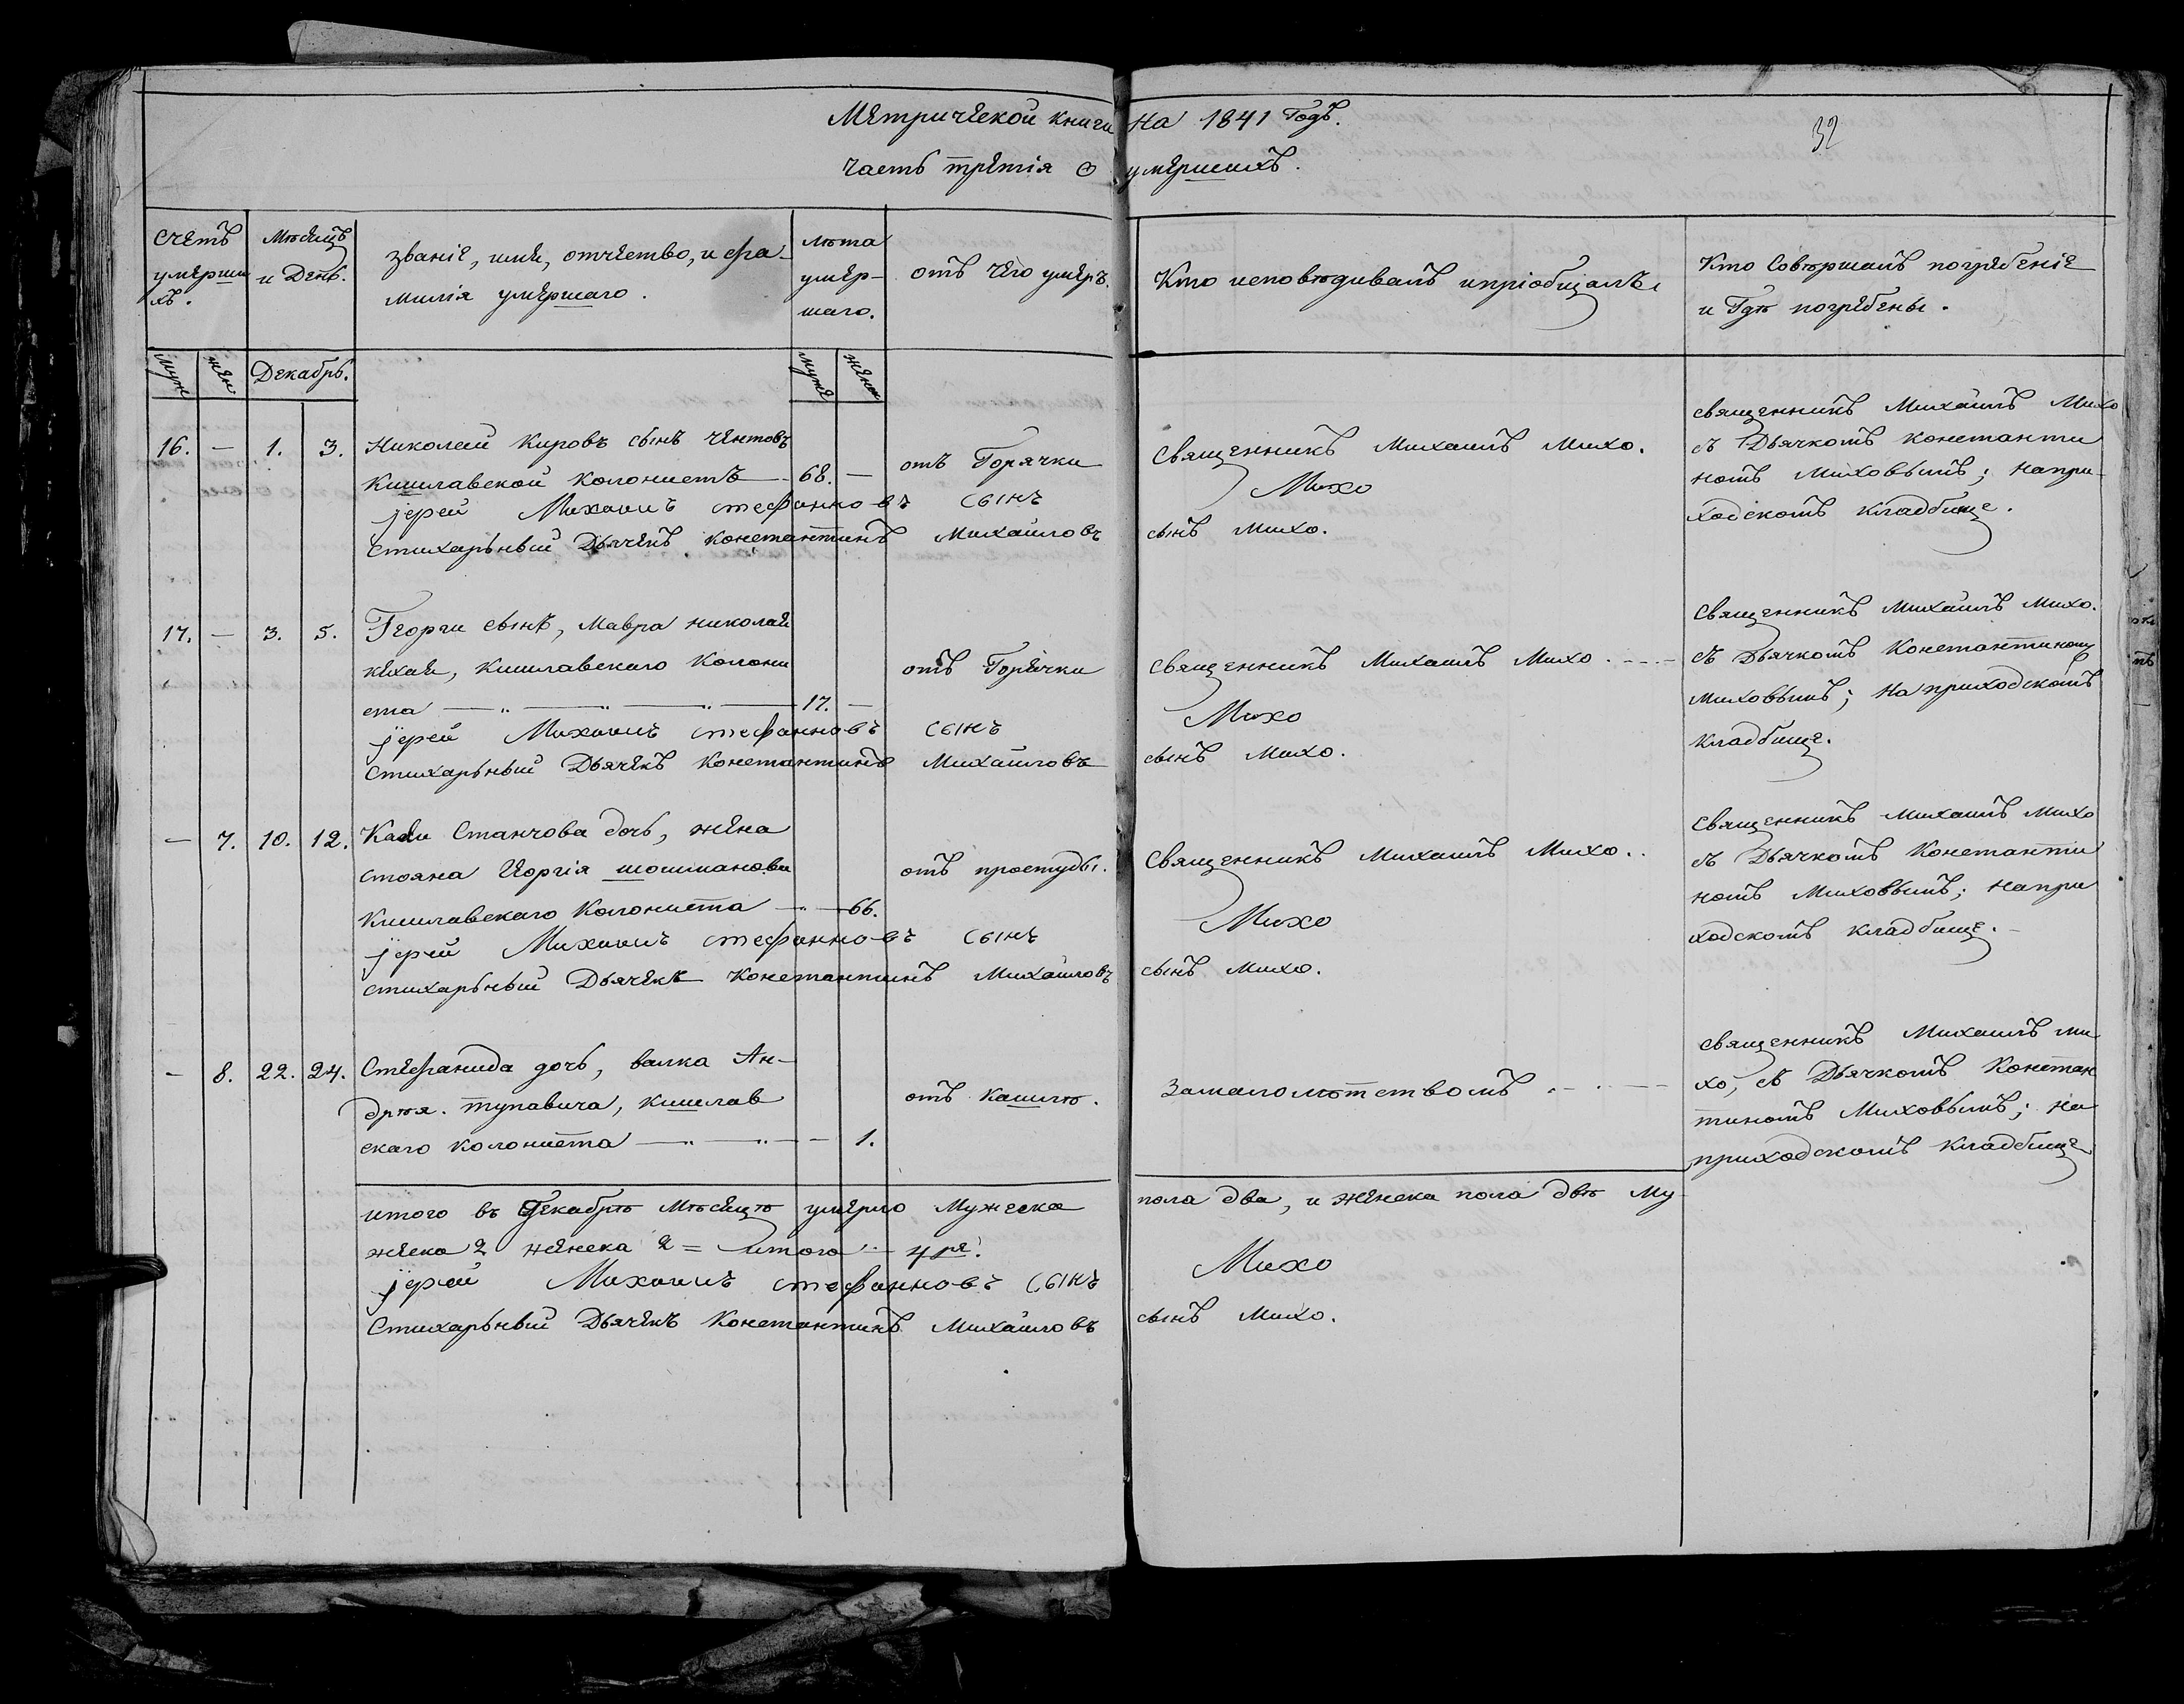 Метрической книги на 1841 Годъ.
32
часть третія о умершихъ.
Счетъ умершихъ.
Мѣсяцъ и День.
званіе, имя, отчество, и фа-
милія умершаго.
лѣта умер-
шаго.
отъ чего умеръ.
Кто исповѣдивалъ и пріобщалъ
Кто Совершалъ погребеніе
и Гдѣ погребены.
муж
жен
Декабрь.
муже
женс
16. — 1. 3. Николай Кировъ сынъ Чентовъ
Кишлавской Колонистъ — 68. —
отъ Горячки
Священникъ Михаилъ Михо.
священникъ Михаилъ Михо
съ Дьячкомъ Константи
номъ Миховымъ; на при-
ходскомъ кладбище.
іерей Михаилъ стефанновъ сынъ Михо
стихарьный Дьячекъ Константинъ Михайловъ сынъ Михо.
17. — 3. 5. Георги сынъ, Мавра Николая
кехая, Кишлавскаго Колони
ста — — — 17. —
отъ Горячки
священникъ Михаилъ Михо. — —
Священникъ Михаилъ Михо.
съ Дьячкомъ Константиномъ
Миховымъ; на приходскомъ
кладбище.
іерей Михаилъ стефанновъ сынъ Михо
стихарьный Дьячекъ Константинъ Михайловъ сынъ Михо.
— 7. 10. 12. Станчова дочь, жена
стояна Георгія
Кишлавскаго Колониста — — 66.
отъ простуды.
Священникъ Михаилъ Михо..
священникъ Михаилъ Михо
съ Дьячкомъ Константи
номъ Миховымъ; на при
ходскомъ кладбище.
іерей Михаилъ стефанновъ сынъ Михо
стихарьный Дьячекъ Константинъ Михайловъ сынъ Михо.
— 8. 22. 24. Стефанида дочь, валка Ан-
дрѣя. тупавича, кишлав
скаго колониста — — — 1.
отъ кашлю.
За малолѣтствомъ. — . —
священникъ Михаилъ ми
хо, съ Дьячкомъ Констан
тиномъ Миховымъ; на
приходскомъ кладбище
итого въ Декабрѣ Мѣсяцѣ умерло Мужеска пола два, и женска пола двѣ Му
жеска 2 женска 2 = итого — 4ре.
іерей Михаилъ стефанновъ сынъ Михо
Стихарьный Дьячекъ Константинъ Михайловъ сынъ Михо.